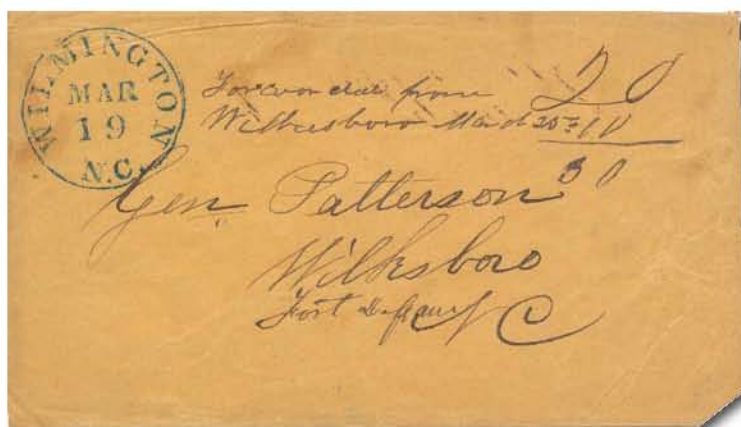 WILMINGTON
MAR
19
N.C.
Forwarded from 20
Wilkesboro March 25th 10
30
Gen. Patterson
Wilkesboro
Fort Defiance N C